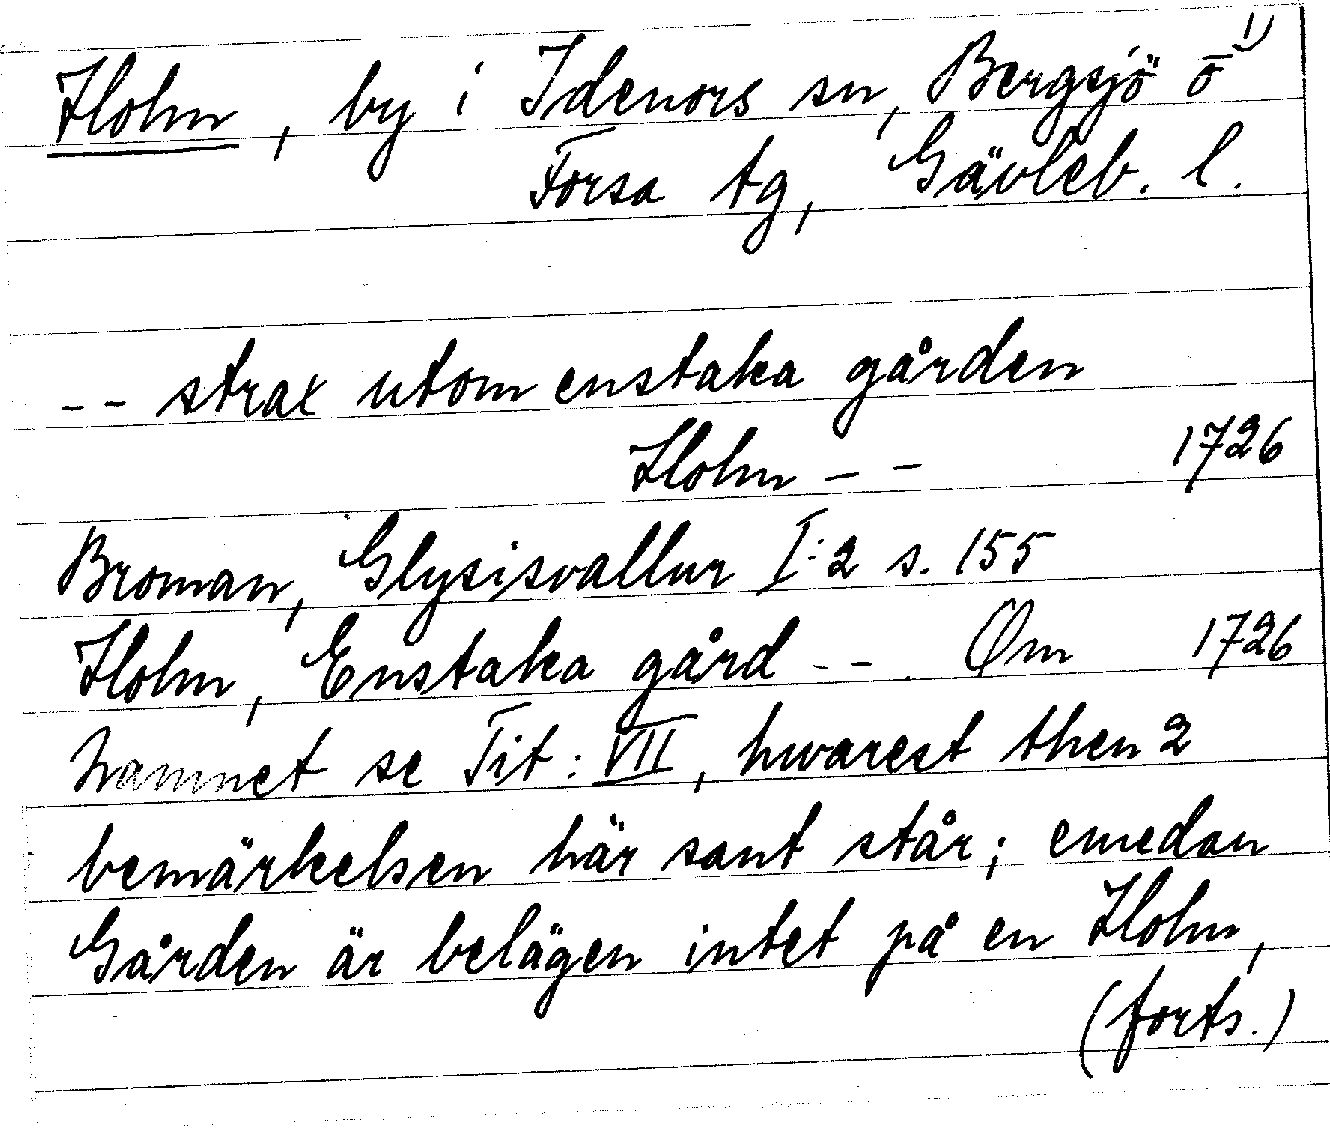 Holm, by i Idenors sn, Bergsjö o¹⁾
Forsa tg, Gävleb. l.
-- strax utom enstaka gården
Holm -- 1726
Broman, Glysisvallur I:2 s. 155
Holm, Enstaka gård --. Om 1726
namnet se Tit: VII, hwarest then 2
bemärkelsen här sant står; emedan
Gården är belägen intet på en Holm,
(forts.)